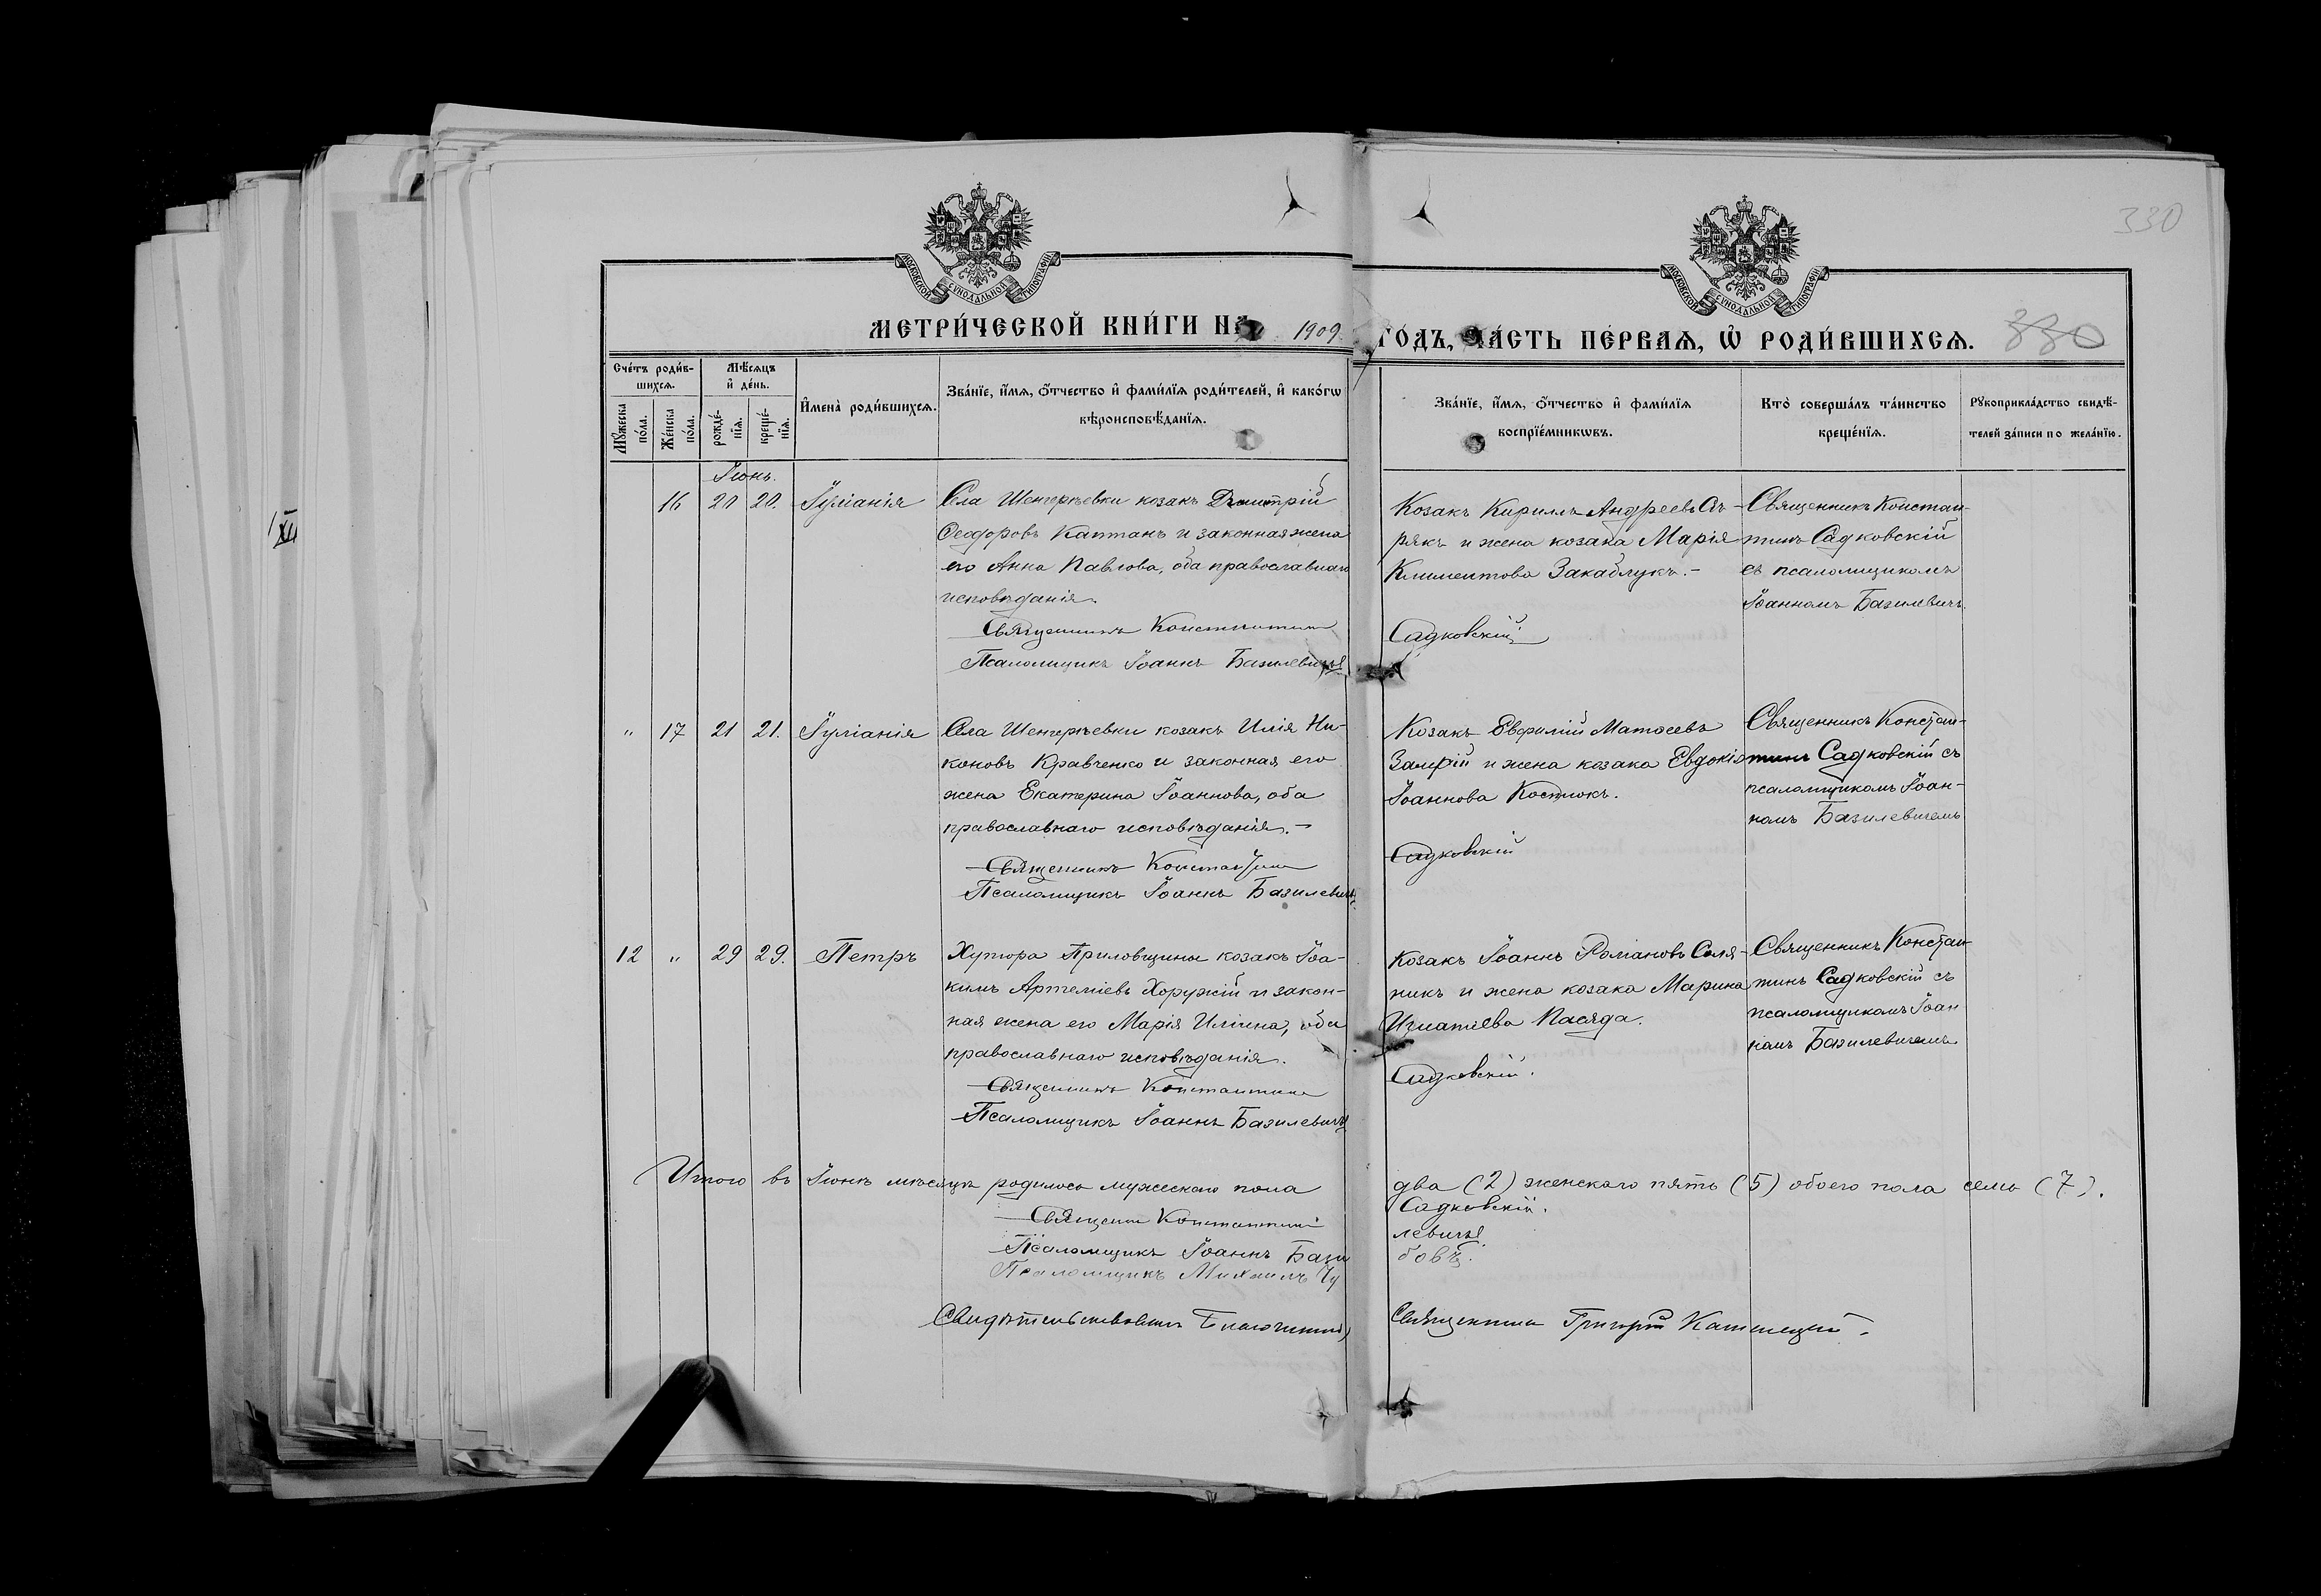 330
МОСКОВСКОЙ СУНОДАЛЬНОЙ ТИПОГРАФІИ
МОСКОВСКОЙ СУНОДАЛЬНОЙ ТИПОГРАФІИ
МЕТРИ́ЧЕСКОЙ КНИ́ГИ НА 1909 ГО́ДЪ, ЧА́СТЬ ПЕ́РВАѦ, Ѡ҆ РОДИ́ВШИХСѦ.
330
Сче́тъ роди́в-
шихсѧ.
Мѣ́сѧцъ
и҆ де́нь.
Мꙋ́жеска
по́ла.
Же́нска
по́ла.
рожде́-
нїѧ.
креще́-
нїѧ.
И҆мена̀ роди́вшихсѧ.
Зва́нїе, и҆́мѧ, ѻ҆́тчество и҆ фами́лїѧ роди́телей, и҆ како́гѡ
вѣроисповѣ́данїѧ.
Зва́нїе, и҆́мѧ, ѻ҆́тчество и҆ фами́лїѧ
воспрїе́мникѡвъ.
Кто̀ соверша́лъ та́инство
креще́нїѧ.
Рꙋкоприкла́дство свидѣ́-
телей за́писи по жела́нїю.
Іюнь.
16 20 20. Іуліанія
Села Шенгерѣевки козакъ Димитрій
Ѳеодоровъ Каптанъ и законная жена
его Анна Павлова, оба православнаго
исповѣданія.
Священникъ Константинъ
Псаломщикъ Іоаннъ Базилевичъ
Козакъ Кириллъ Андреевъ Сѣ-
рякъ и жена козака Марія
Климентова Закаблукъ.-
Садковскій
Священникъ Констан-
тинъ Садковскій
съ псаломщикомъ
Іоанномъ Базилевичъ.
" 17 21 21. Іуліанія
Села Шенгерѣевки козакъ Илія Ни-
коновъ Кравченко и законная его
жена Екатерина Іоаннова, оба
православнаго исповѣданія.-
Священникъ Константинъ
Псаломщикъ Іоаннъ Базилевичъ
Козакъ Евфимій Матѳеевъ
и жена козака Евдокія
Іоаннова Костюкъ.
Садковскій
Священникъ Констан-
тинъ Садковскій съ
псаломщикомъ Іоан-
номъ Базилевичемъ
12 " 29 29. Петръ
Хутора козакъ Іоа-
кимъ Артеміевъ Хоружій и закон-
ная жена его Марія Иліина, оба
православнаго исповѣданія.
Священникъ Константинъ
Псаломщикъ Іоаннъ Базилевичъ
Козакъ Іоаннъ Романовъ Соля-
никъ и жена козака Марина
Игнатіева Пасяда.
Садковскій.
Священникъ Констан
тинъ Садковскій съ
псаломщикомъ Іоан
номъ Базилевичемъ
Итого въ Іюнѣ мѣсяцѣ родилось мужескаго пола два (2) женскаго пять (5) обоего пола семь (7).
Священн Константинъ Садковскій.
Псаломщикъ Іоаннъ Базилевичъ.
Псаломщикъ Михаилъ
Свидѣтельствовалъ Благочинный Священникъ Григорій